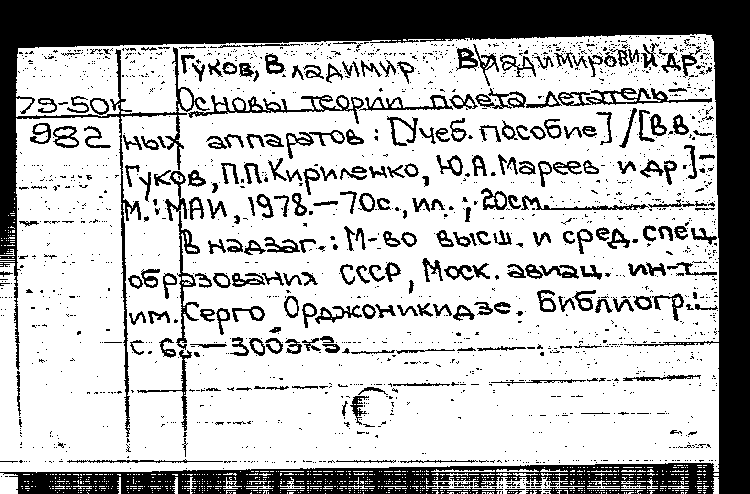 Гуков, Владимир Владимирович и др.
79-50к Основы теории полета летатель-
982 ных аппаратов : [Учеб. пособие] / [В.В.
Гуков, П.П. Кириленко, Ю.А. Мареев и др.].-
М. : МАИ, 1978.— 70с., ил. ; 20см.
В надзаг. : М-во высш. и сред. спец.
образования СССР, Моск. авиац. ин-т
им. Серго Орджоникидзе. Библиогр.:
с. 68.— 300экз.